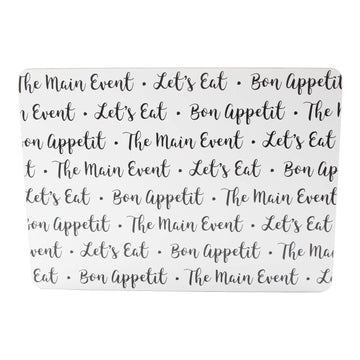 The Main Event • Let's Eat • Bon Appetit •
Main Event • Let's Eat • Bon Appetit • The M
on Appetit • The Main Event • Let's Eat • Bon
Eat • The Main Event • Let's Eat • Bon Appetit
Let's Eat • Bon Appetit • The Main Event • Let's
Bon Appetit • The Main Event • Let's Eat •
Event • Let's Eat • Bon Appetit • The Main Eve
Eat • Bon Appetit • The Main Event • Let's